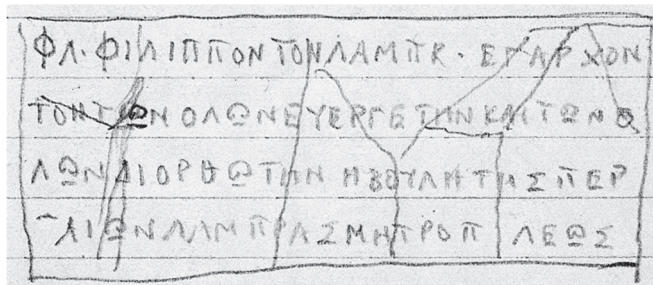 ΦΛ· ΦΙΛΙΠΠΟΝ ΤΟΝ ΛΑΜΠΚ · ΕΠΑΡΧΟΝ
ΤΟΝ ΤΩΝ ΟΛΩΝ ΕΥΕΡΓΕΤΗΝ ΚΑΙ ΤΩΝ Ο
ΛΩΝ ΔΙΟΡΘΩΤΗΝ Η ΒΟΥΛΗ ΤΗΣ ΠΕΡ
ΑΙΩΝ ΛΑΜΠΡΑΣ ΜΗΤΡΟΠ ΛΕΩΣ